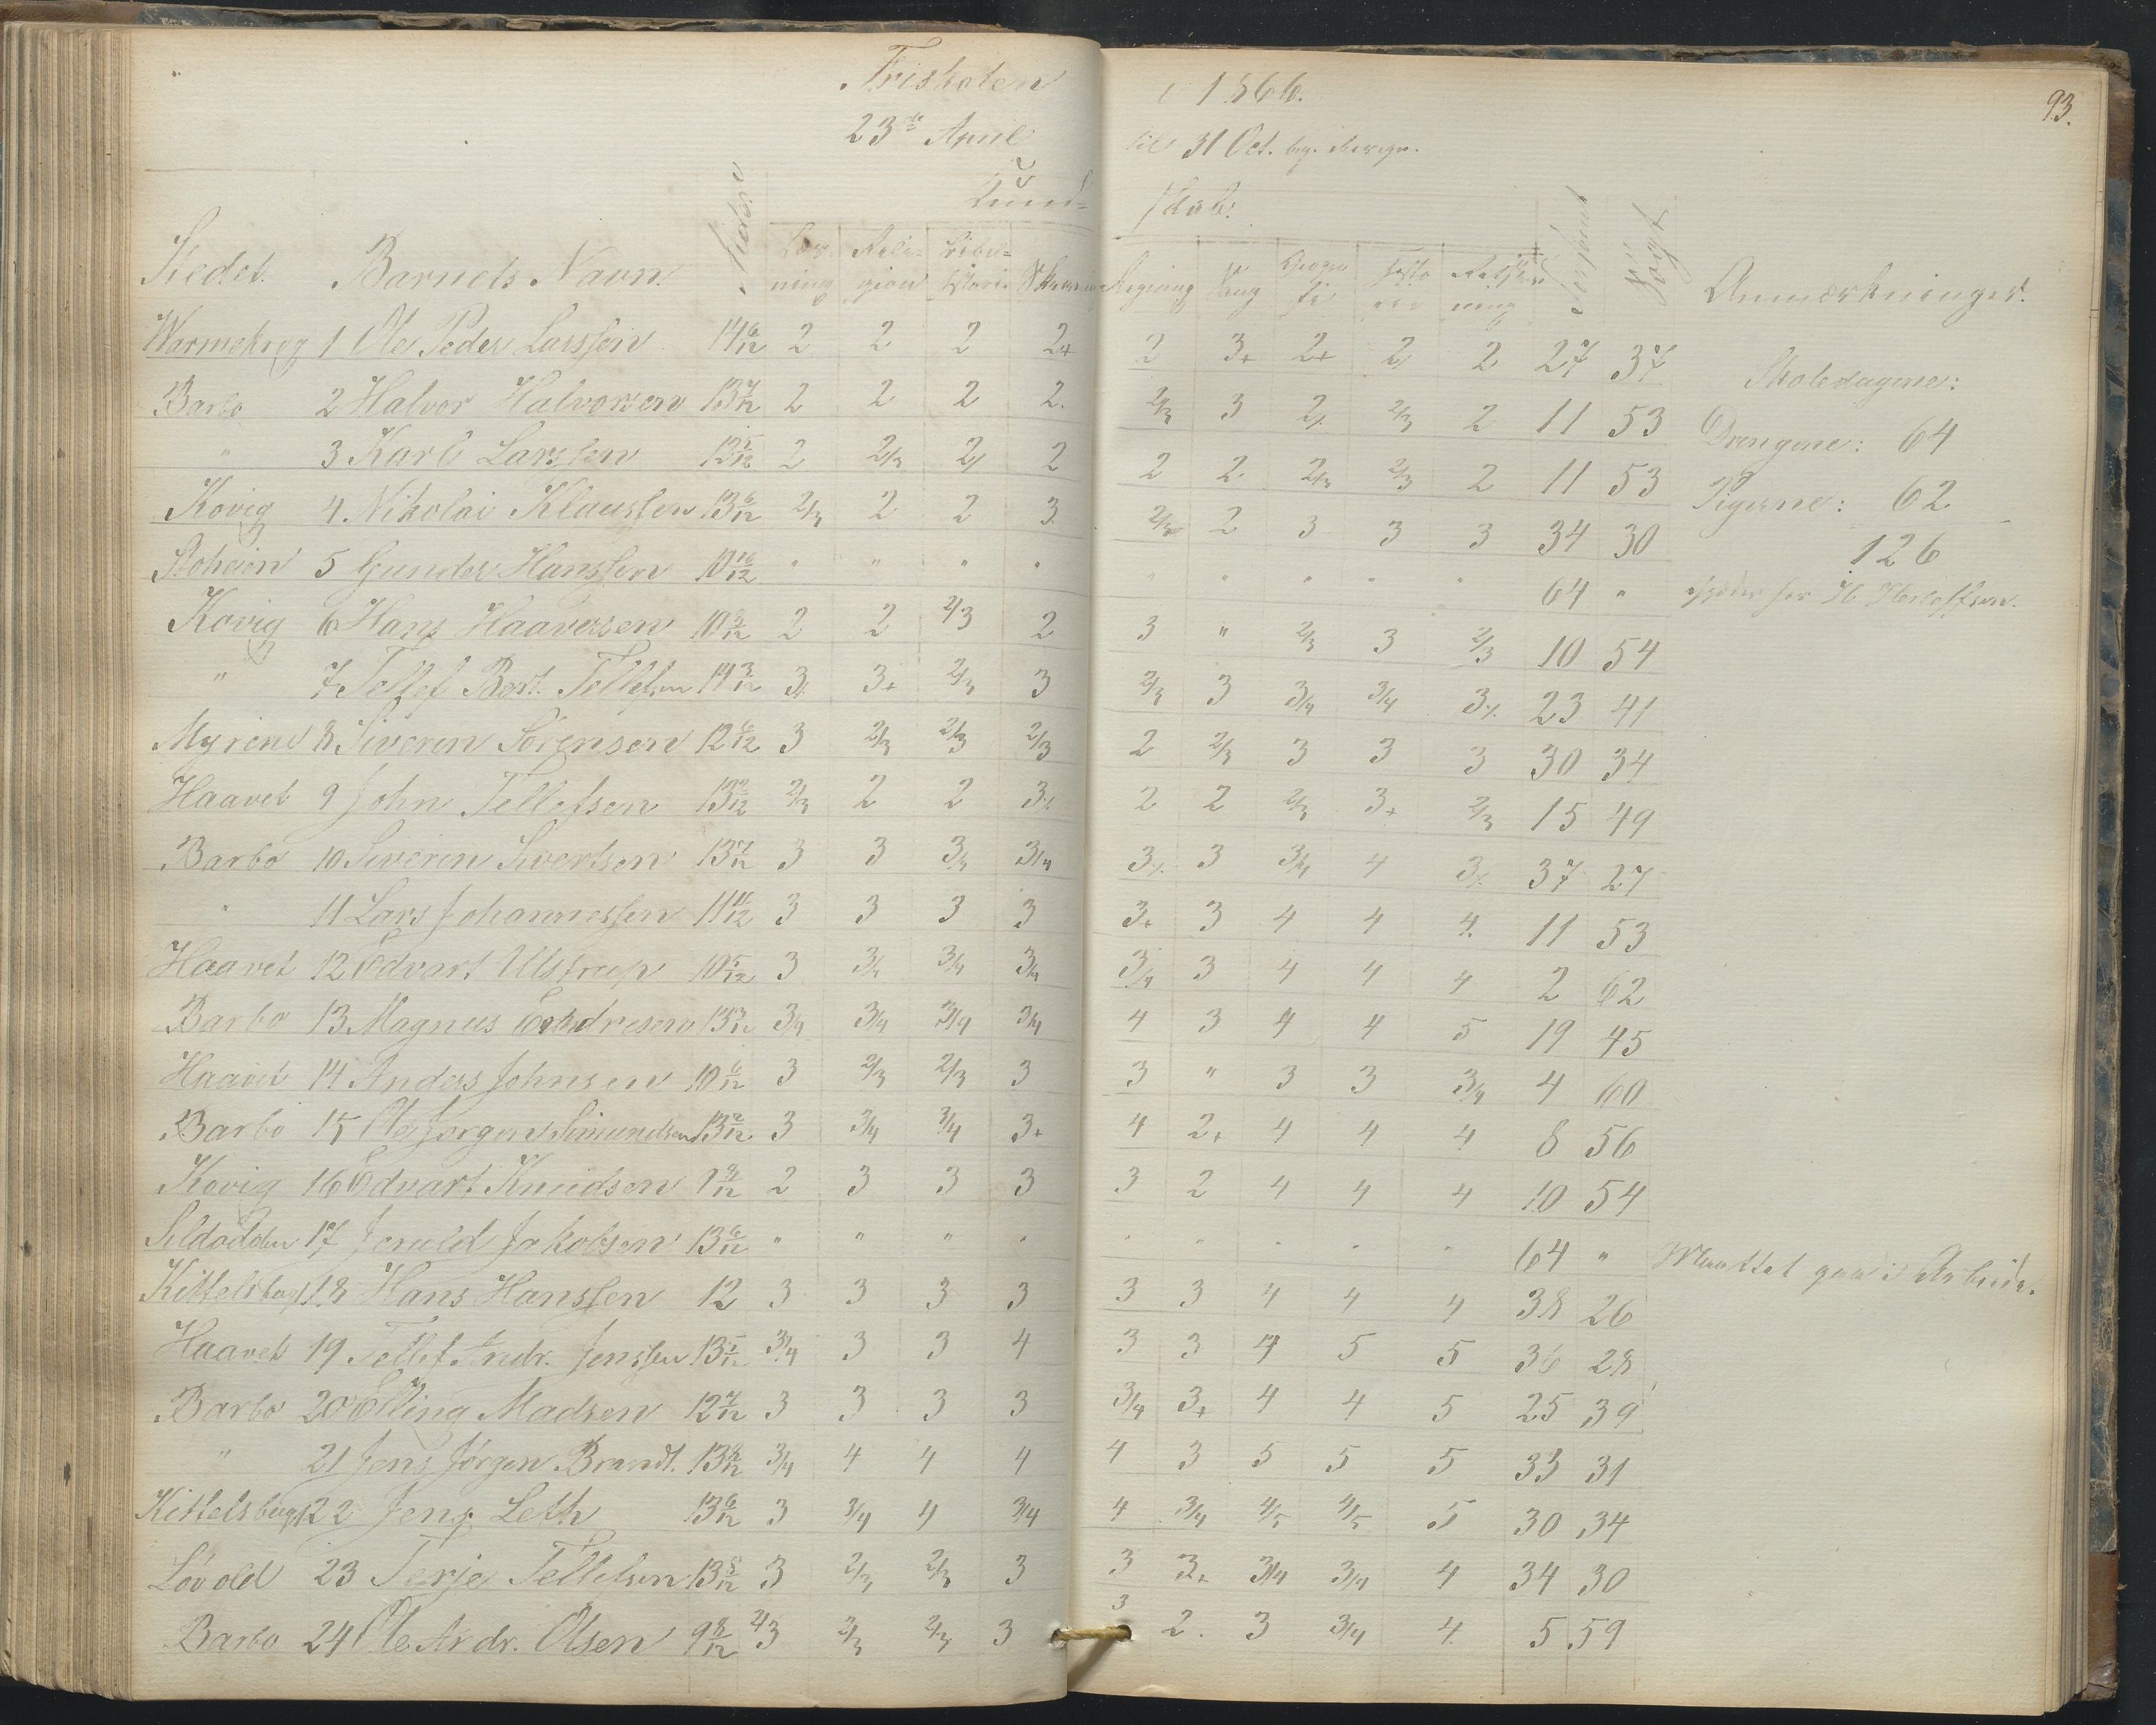 Friskolen i 1866. 93.
23de April til 31 Oct. beg. iberegn.
Kund- skab:
Stedet. Barnets Navn. Alder Læsning Religion Bibelhistorie Skrivning Regning Sang Geografi Historie Forsømt Søgt Anmærkninger.
Warmekrog 1 Ole Peder Larssen 14 6/12 2 2 2 2+ 2 3+ 2+ 2/ 2 27 37
Skoledagene:
Barbo 2 Halvor Halvorsen 13 7/12 2 2 2 2. 2/3 3 2/. 2/3 2 11 53
Drengene: 64
" 3 Karl Larssen 13 5/12 2 2/3 2/ 2 2 2 2/3 2/3 2 11 53
Pigerne: 62
Kovig 4. Nikolai Klaussen 13 6/12 2/3 2 2 3 2/3 2 3 3 3 34 30
126
5 Gunder Hanssen 10 10/12 " " " " " " " " " 64 "
Kovig 6 Hans Haaversen 10 9/12 2 2 2/3 2 3 " 2/3 3 2/3 10 54
" 7 Tellef Bert. Tellefsen 14 3/12 3/. 3+ 2/3 3 2/3 3 3/4 3/4 3/. 23 41
Myrene 8 Siveren Sørensen 12 6/12 3 2/3 2/3 2/3 2 2/3 3 3 3 30 34
Haavet 9 John Tellefsen 13 10/12 2/3 2 2 3/. 2 2 2/3 3+ 2/3 15 49
Barbo 10 Siveren Sivertsen 13 7/12 3 3 3/4 3/4 3/. 3 3/4 4 3/. 37 27
" 11 Lars Johannessen 11 11/12 3 3 3 3 3+ 3 4 4 4. 11 53
Haavet 12 Edvart Ulstrup 10 5/12 3 3/4 3/4 3/4 3/4 3 4 4 4 2 62
Barbo 13 Magnus Endresen 13 3/12 3/4 3/4 3/4 3/4 4 3 4 4 5 19 45
Haavet 14 Anders Johnsen 10 6/12 3 2/3 2/3 3 3 " 3 3 3/4 4 60
Barbo 15 Ole Jørgen Simundsen 13 2/12 3 3/4 3/4 3+ 4 2+ 4 4 4 8 56
Kovig 16 Edvart Knudsen 9/12 2 3 3 3 3 2 4 4 4 10 54
Sildodden 17 Jeruld Jakobsen 13 6/12 " " " " " " " " " 64 " Maattet gaa i Arbeide.
Kittelsbugt 18 Hans Hanssen 12 3 3 3 3 3 3 4 4 4 38 26
Haavet 19 Tellef Andr. Jenssen 13 5/12 3/4 3 3 4 3 3 4 5 5 36 28
Barbo 20 Elling Madsen 12 7/12 3 3 3 3 3/4 3+ 4 4 5 25 39
" 21 Jens Jørgen Brandt. 13 8/12 3/4 4 4 4 4 3 5 5 5 33 31
Kittelsbugt 22 Jens Leth 13 6/12 3 3/4 4 3/4 4 3/4 4/5 4/5 5 30 34
Løvold 23 Terje Tellefsen 13 8/12 3 2/3 2/3 3 3 3+ 3/4 3/4 4 34 30
Barbo 24 Ole Andr. Olsen 9 8/12 2/3 2/3 2/3 3 3 2. 3 3/4 4. 5 59